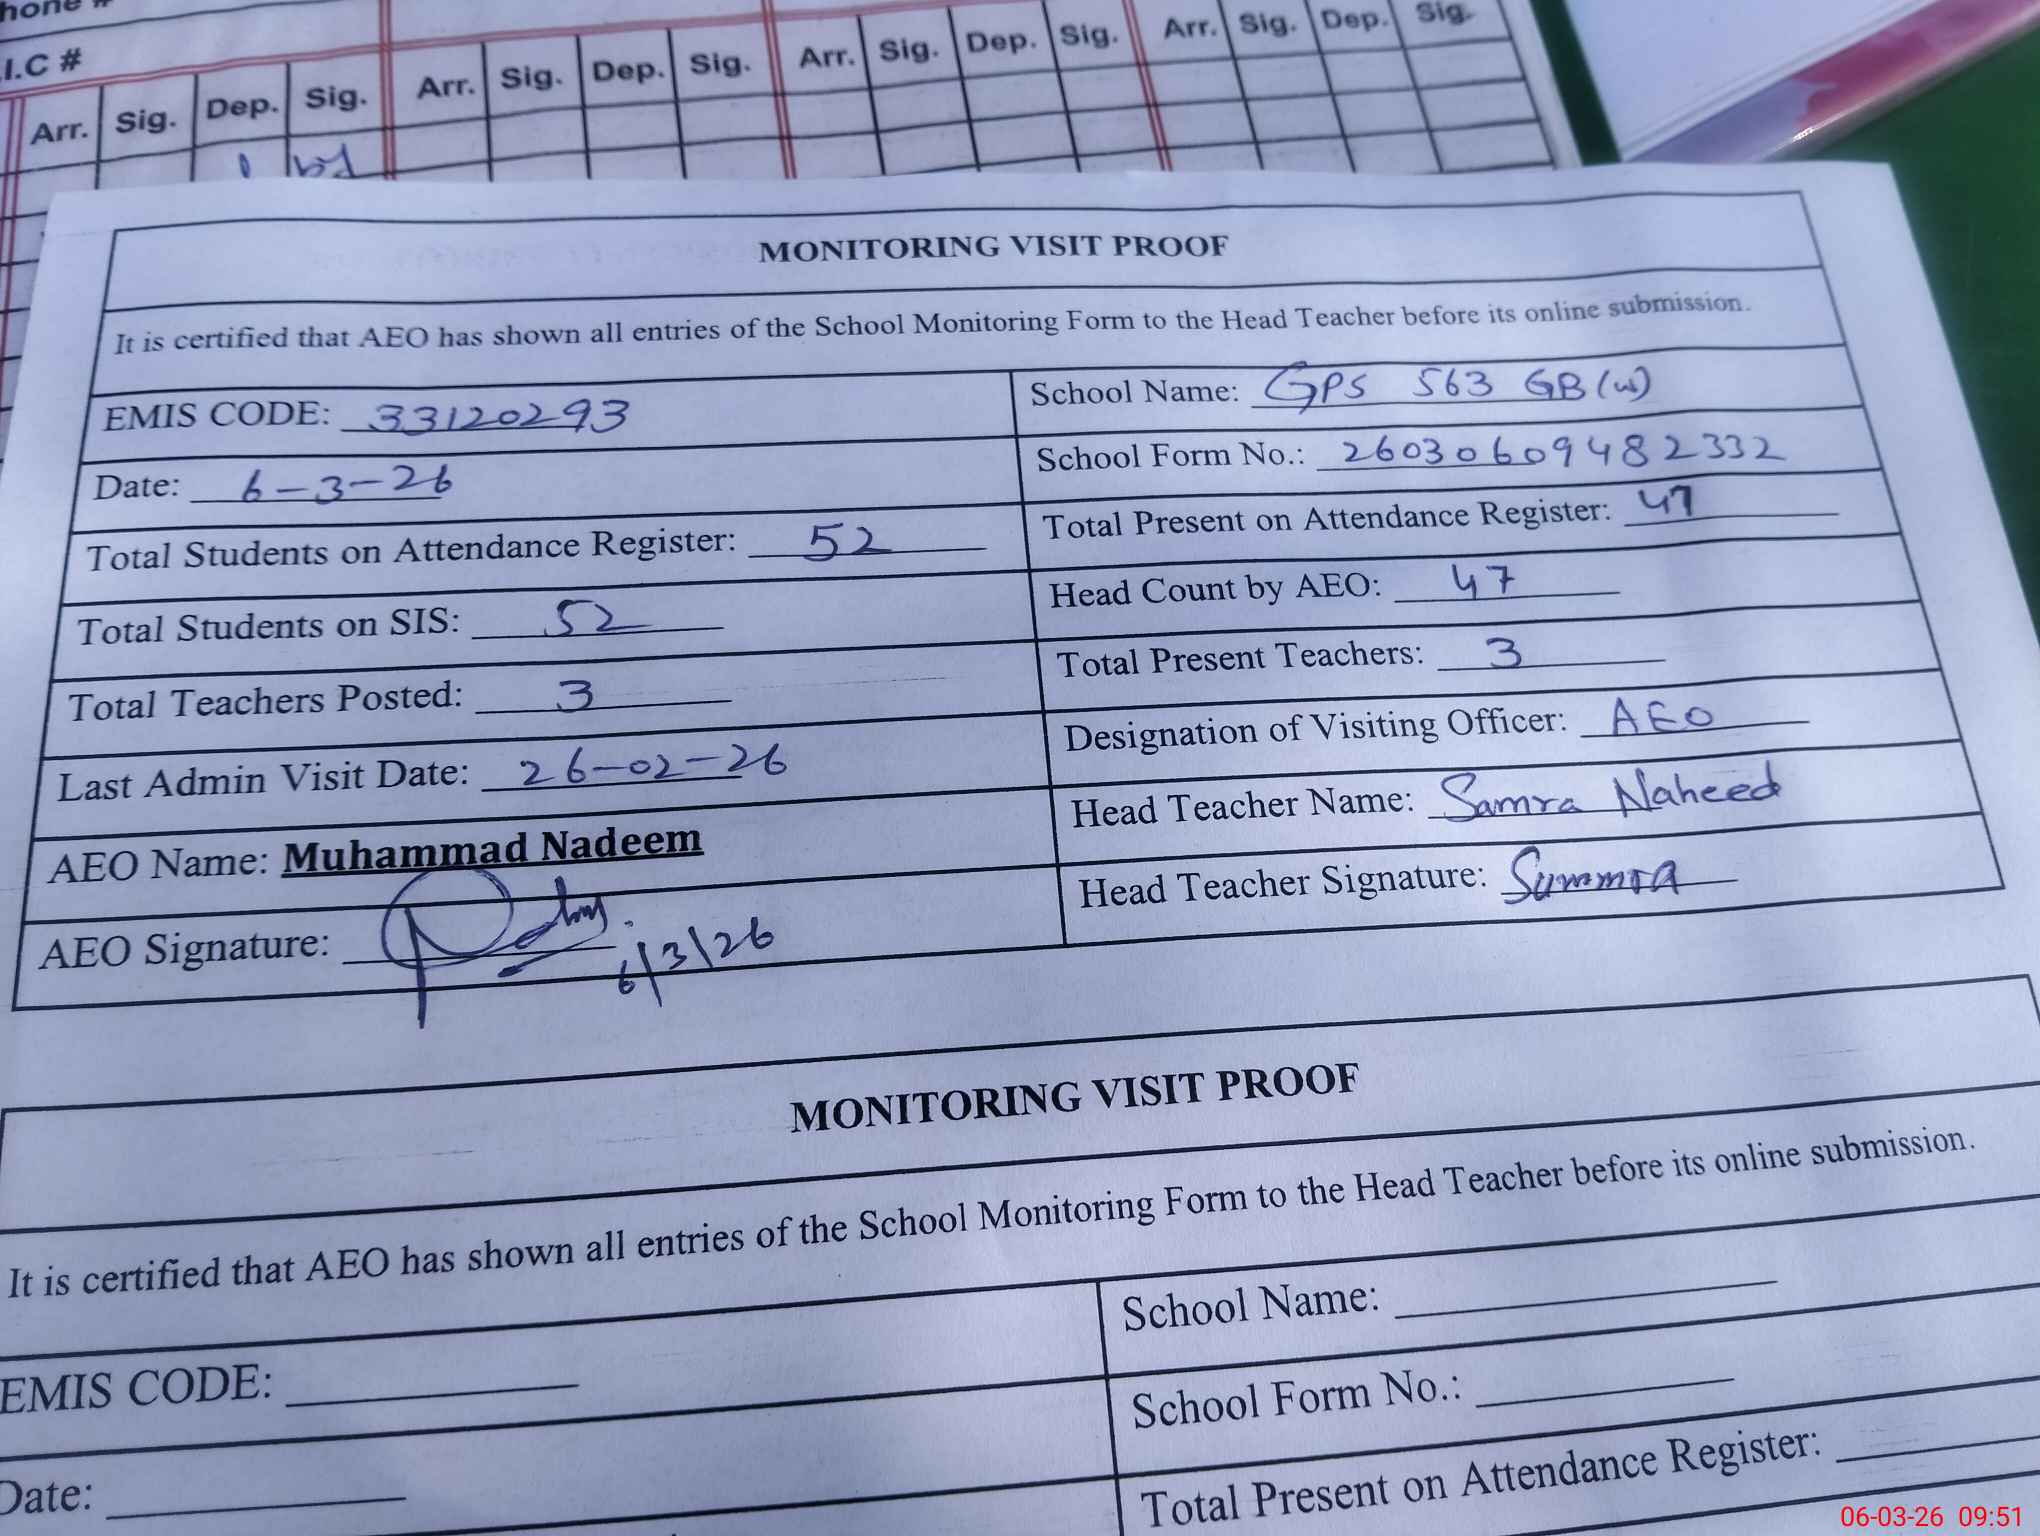 hone #
I.C #
Arr. Sig. Dep. Sig. Arr. Sig. Dep. Sig. Arr. Sig. Dep. Sig. Arr. Sig. Dep. Sig.
MONITORING VISIT PROOF
It is certified that AEO has shown all entries of the School Monitoring Form to the Head Teacher before its online submission.
EMIS CODE: 33120293
School Name: GPS 563 GB (w)
Date: 6-3-26
School Form No.: 26030609482332
Total Students on Attendance Register: 52
Total Present on Attendance Register: 47
Total Students on SIS: 52
Head Count by AEO: 47
Total Teachers Posted: 3
Total Present Teachers: 3
Last Admin Visit Date: 26-02-26
Designation of Visiting Officer: AEO
AEO Name: Muhammad Nadeem
Head Teacher Name: Samra Naheed
AEO Signature: 6/3/26
Head Teacher Signature: Summra
MONITORING VISIT PROOF
It is certified that AEO has shown all entries of the School Monitoring Form to the Head Teacher before its online submission.
EMIS CODE:
School Name:
School Form No.:
Date:
Total Present on Attendance Register:
06-03-26 09:51